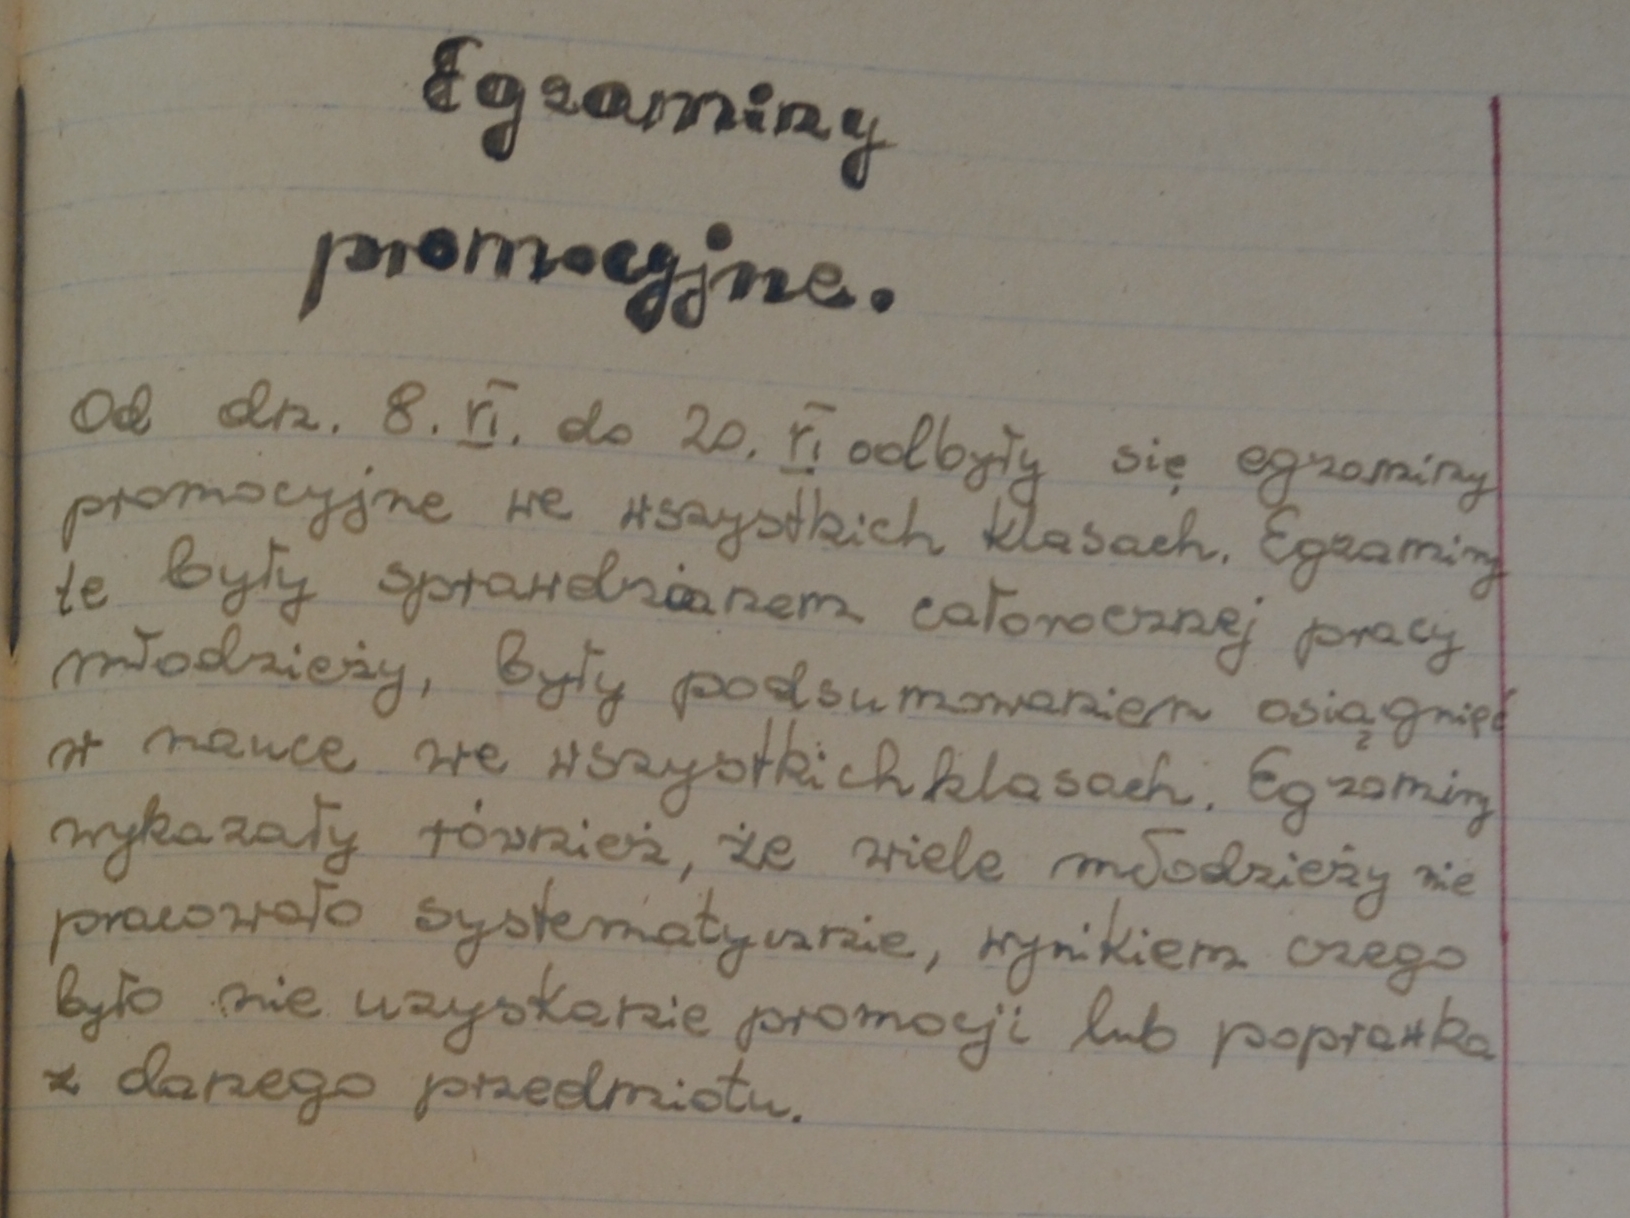 Egzaminy
promocyjne.
Od dn. 8. VI. do 20. VI odbyły się egzaminy
promocyjne we wszystkich klasach. Egzaminy
te były sprawdzianem całorocznej pracy
młodzieży, były podsumowaniem osiągnięć
w nauce we wszystkich klasach. Egzaminy
wykazały również, że wiele młodzieży nie
pracowało systematycznie, wynikiem czego
było nie uzyskanie promocji lub poprawka
z danego przedmiotu.